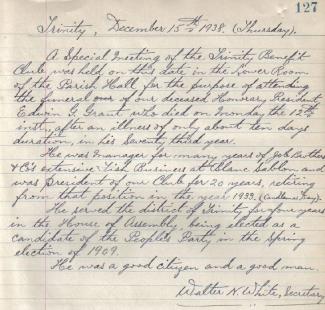 127
Trinity, December 15th 1938. (Thursday).
A Special Meeting of the Trinity Benefit
Club was held on this date in the Lower Room
of the Parish Hall, for the purpose of attending
the funeral of our deceased Honorary President
Edwin G. Grant, who died on Monday the 12th
inst., after an illness of only about ten days
duration, in his Seventy third year.
He was manager for many years of Job Brothers
& Co's extensive Fish Business at Blanc Sablon and
was President of our Club for 20 years, retiring
from that position in the year 1933. (Candlemas Day).
He served the district of Trinity for four years
in the House of Assembly, being elected as a
candidate of the People's Party in the Spring
election of 1909.
He was a good citizen and a good man.
Walter N. White, Secretary